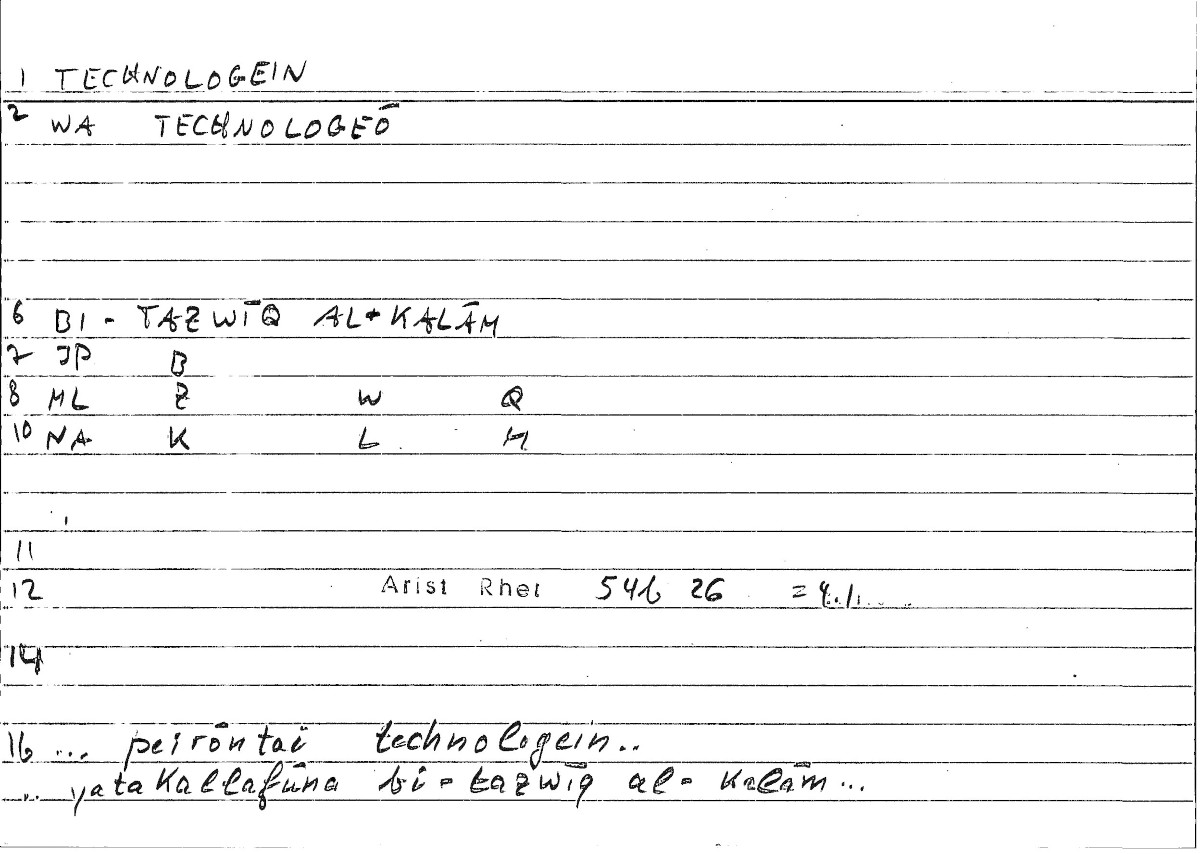 1 TECHNOLOGEIN
2 WA TECHNOLOGEŌ
6 BI - TAZWĪQ AL-KALĀM
7 JP B
8 ML Z W Q
10 NA K L M
11
12 Arist Rhet 54b 26
14
16 ... peirōntai technologein..
.. yatakallafūna bi-tazwīq al-kalām...